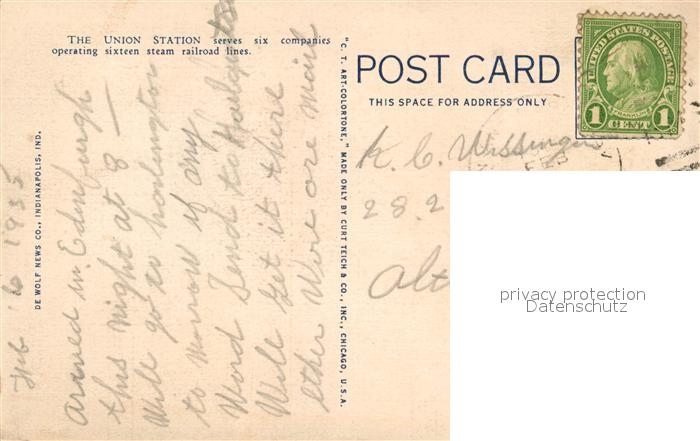 THE UNION STATION serves six companies
operating sixteen steam railroad lines.
POST CARD
THIS SPACE FOR ADDRESS ONLY
UNITED STATES POSTAGE
FRANKLIN
1 CENT 1
"C. T. ART-COLORTONE," MADE ONLY BY CURT TEICH & CO., INC., CHICAGO, U.S.A.
DE WOLF NEWS CO., INDIANAPOLIS, IND.
Feb '6 1935
Arived in Edinburgh
this night at 8 —
Will go to
to morrow if any
Word Send to
Will get it there
ether Wire ore Mail
K. C.
28.2
Alt
privacy protection
Datenschutz